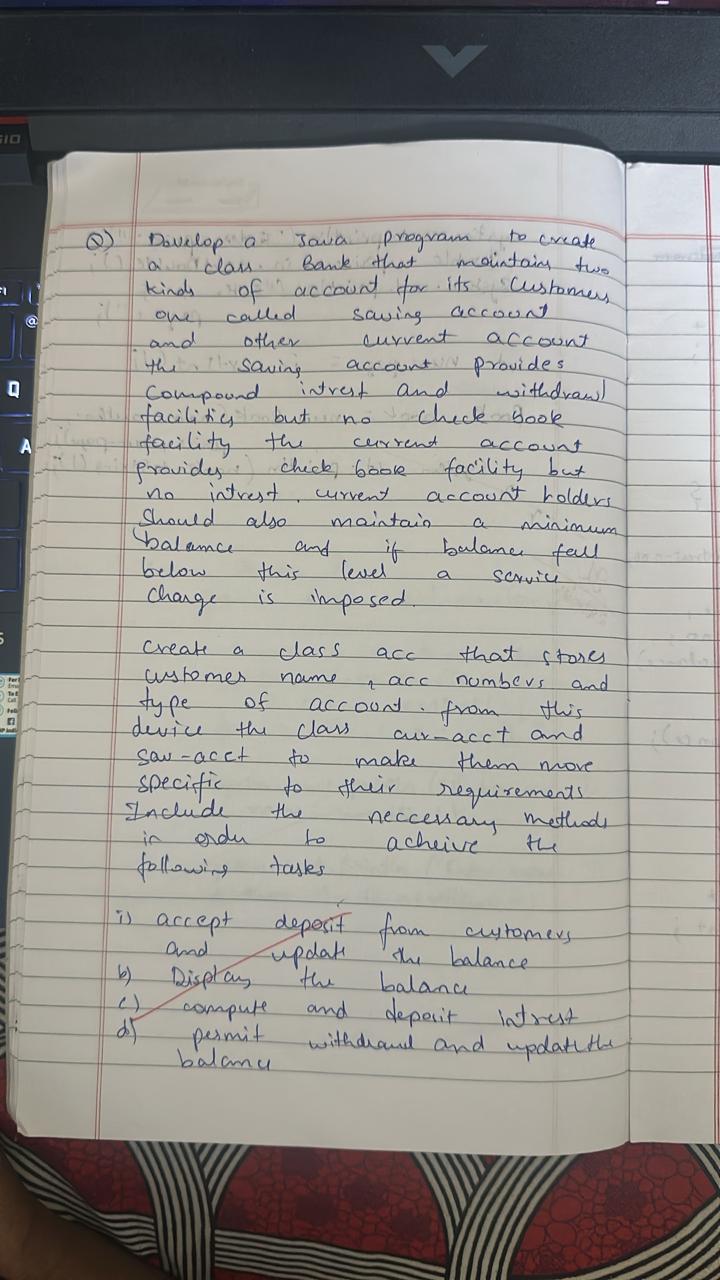 Q) Develop a Java program to create
a class Bank that maintains two
kinds of account for its customers
one called saving account
and other current account
the saving account provides
compound intrest and withdrawl
facilities but no check book
facility the current account
provides check book facility but
no intrest. current account holders
should also maintain a minimum
balance and if balance fall
below this level a service
charge is imposed.
create a class acc that stores
customer name, acc numbers and
type of account. from this
device the class cur-acct and
sav-acct to make them more
specific to their requirements
Include the neccessary methods
in order to acheive the
following tasks
i) accept deposit from customers
and update the balance
b) Display the balance
c) compute and deposit intrest
d) permit withdrawl and update the
balance
Q
A
@